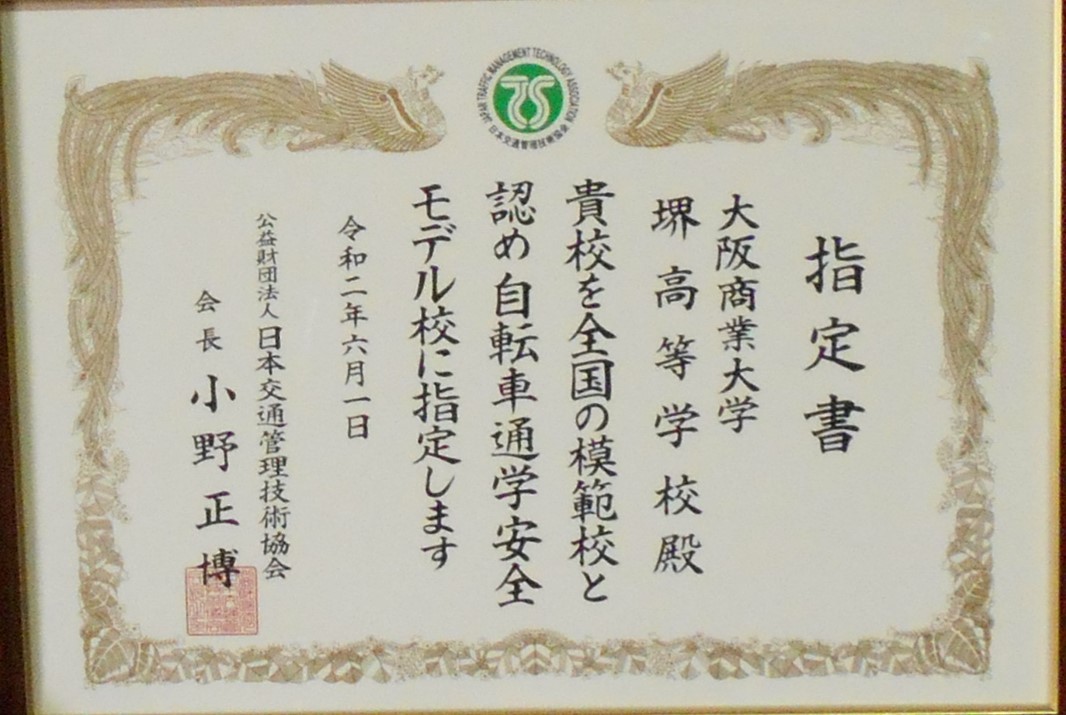 JAPAN TRAFFIC MANAGEMENT TECHNOLOGY ASSOCIATION
日本交通管理技術協会
指定書
大阪商業大学
堺高等学校殿
貴校を全国の模範校と
認め自転車通学安全
モデル校に指定します
令和二年六月一日
公益財団法人日本交通管理技術協会
会長 小野正博